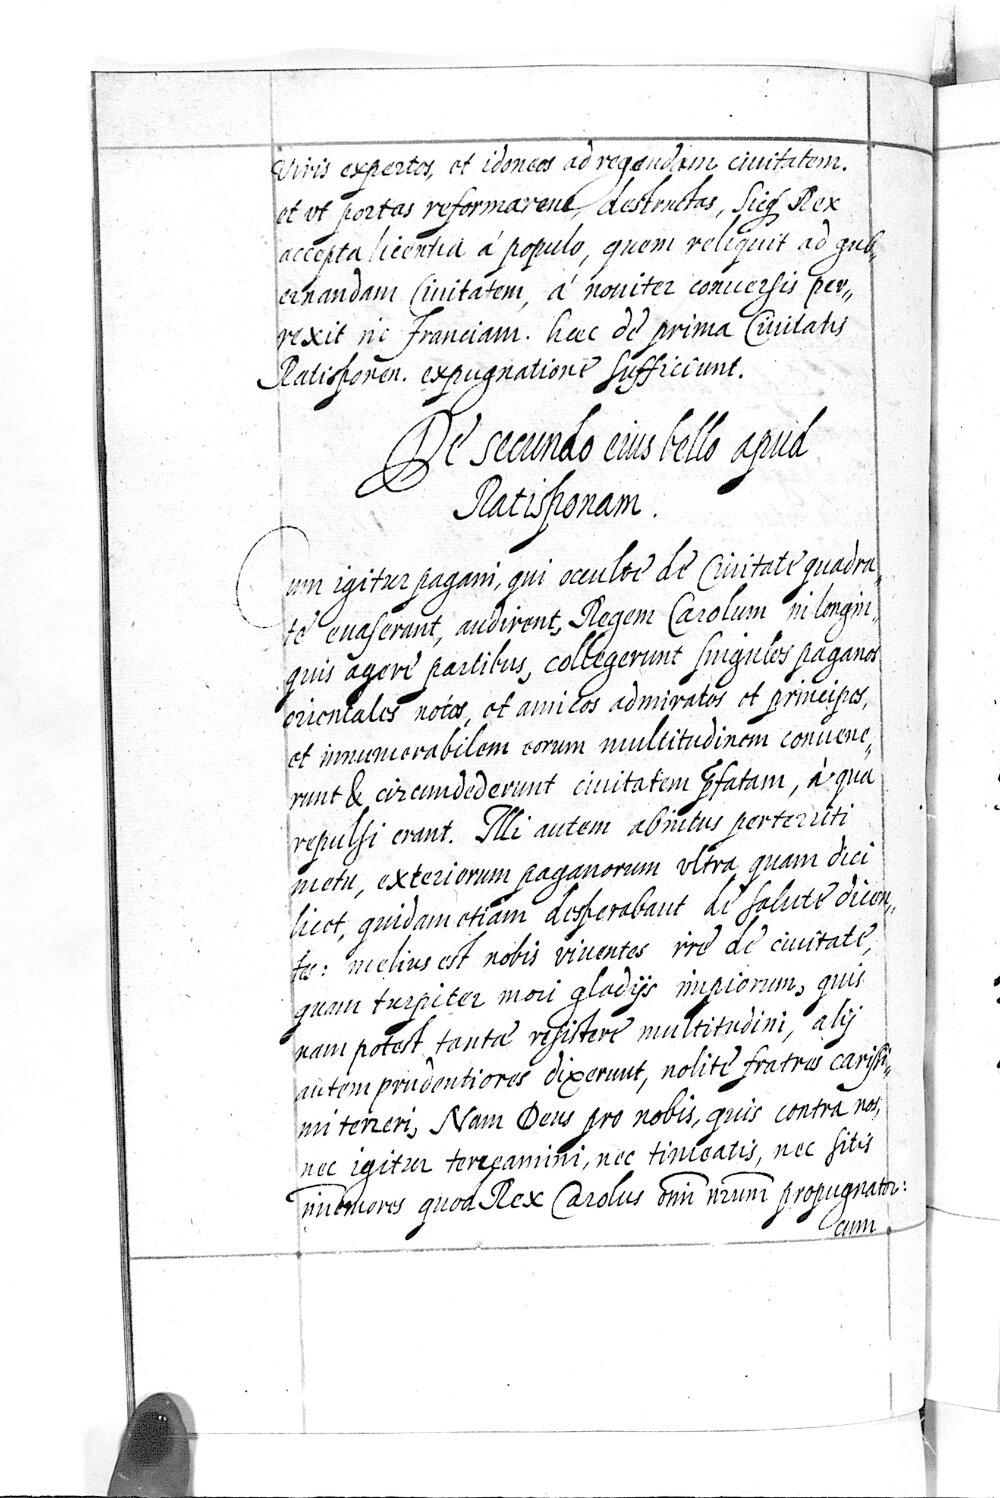 viris expertos, et idoneos ad regendam ciuitatem.
et vt portas reformarent, destructas, sicq Rex
accepta licentia á populo, quem reliquit ad gub„
ernandam Ciuitatem, á nouiter conuersis per„
rexit in Franciam. haec de prima Ciuitatis
Ratisponen. expugnatione sufficiunt.
De secundo eius bello apud
Ratisponam.
Cum igitur pagani, qui occulte de Ciuitate quadra„
te euaserant, audirent, Regem Carolum in longin„
quis agere partibus, collegerunt singulos paganos
orientales notos, et amicos admiratos et principes,
et innumerabilem eorum multitudinem conuene„
runt & circumdederunt ciuitatem pfatam, á qua
repulsi erant. Illi autem abintus perterriti
metu, exteriorum paganorum vltra quam dici
licet, quidam etiam desperabant de salute dicen„
tes: melius est nobis viuentes ire de ciuitate,
quam turpiter mori gladijs impiorum, quis
nam potest tantae resistere multitudini, alij
autem prudentiores dixerunt, nolite fratres carissi„
mi terreri, Nam Deus pro nobis, quis contra nos,
nec igitur terreamini, nec timeatis, nec sitis
immemores quod Rex Carolus omi nrum propugnator:
cum